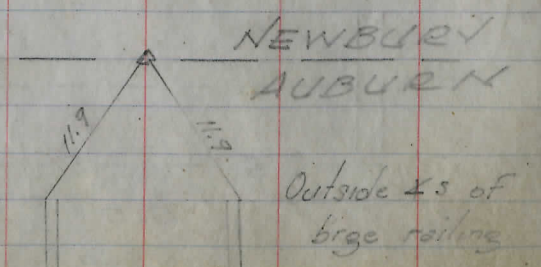 NEWBURY
AUBURN
11.9
11.9
Outside ∠s of
brge railing